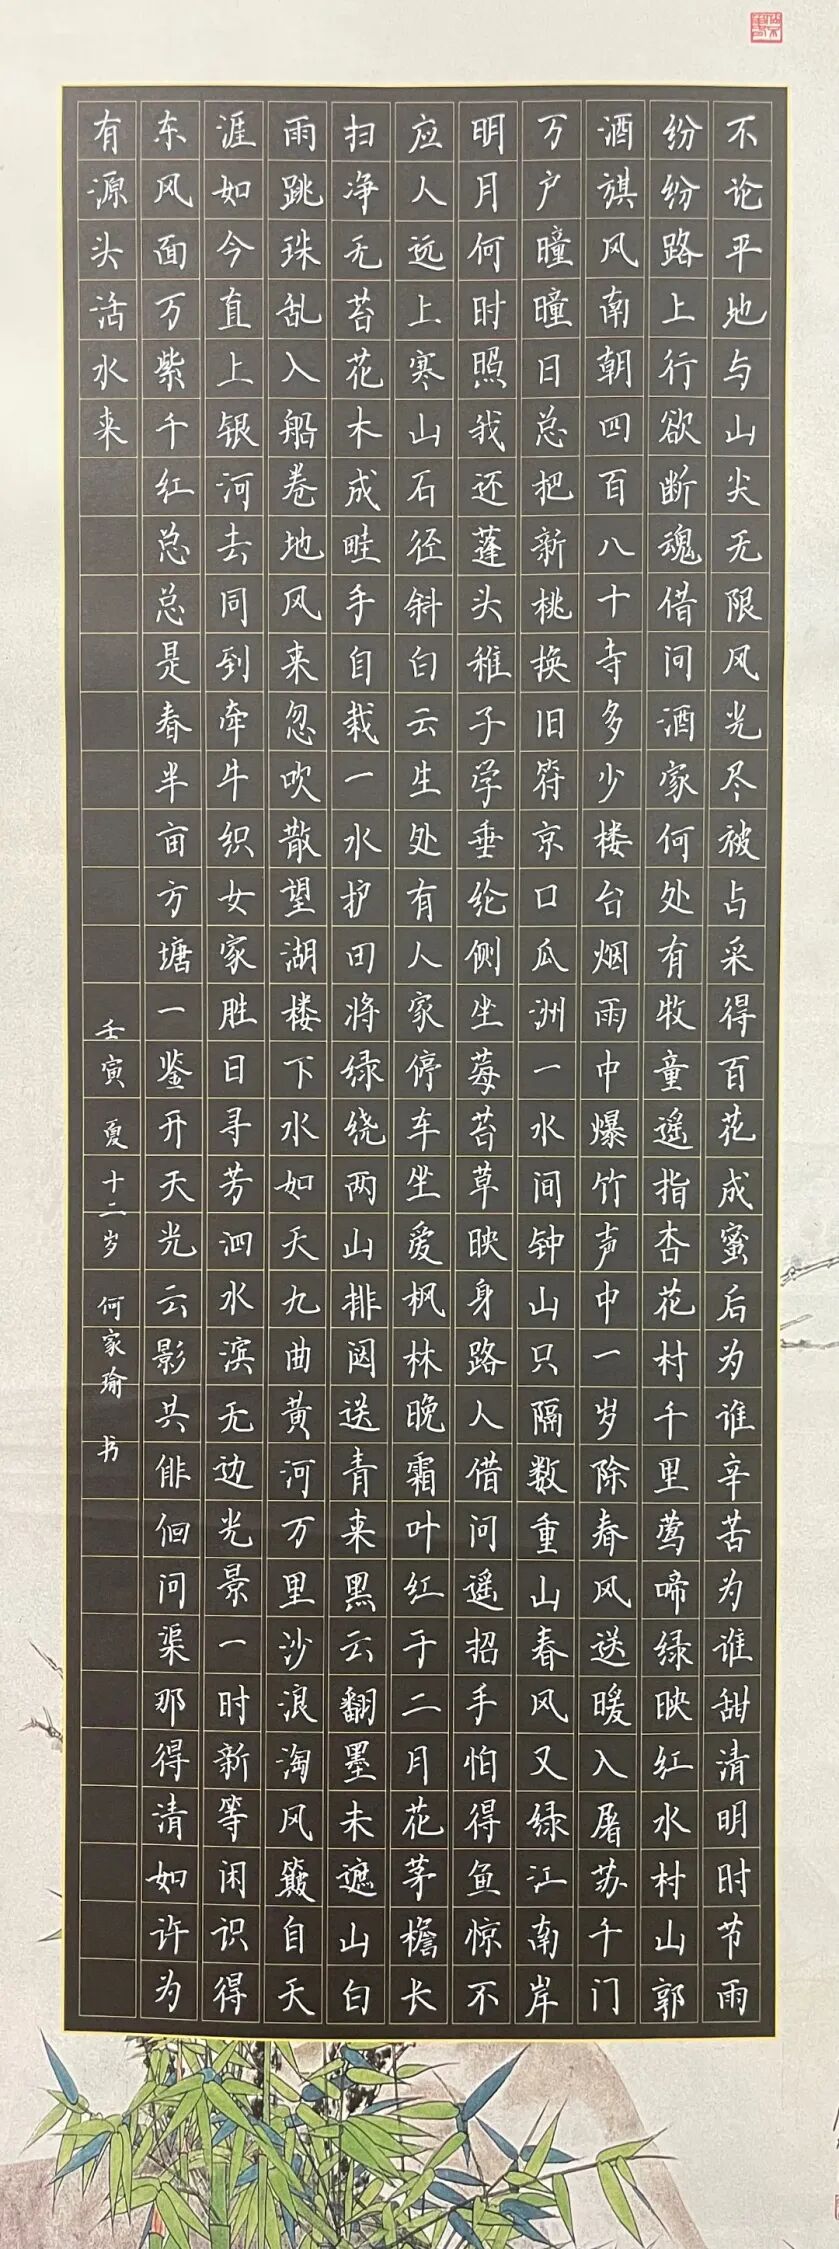 不论平地与山尖无限风光尽被占采得百花成蜜后为谁辛苦为谁甜清明时节雨
纷纷路上行欲断魂借问酒家何处有牧童遥指杏花村千里莺啼绿映红水村山郭
酒旗风南朝四百八十寺多少楼台烟雨中爆竹声中一岁除春风送暖入屠苏千门
万户曈曈日总把新桃换旧符京口瓜洲一水间钟山只隔数重山春风又绿江南岸
明月何时照我还蓬头稚子学垂纶侧坐莓苔草映身路人借问遥招手怕得鱼惊不
应人远上寒山石径斜白云生处有人家停车坐爱枫林晚霜叶红于二月花茅檐长
扫净无苔花木成畦手自栽一水护田将绿绕两山排闼送青来黑云翻墨未遮山白
雨跳珠乱入船卷地风来忽吹散望湖楼下水如天九曲黄河万里沙浪淘风簸自天
涯如今直上银河去同到牵牛织女家胜日寻芳泗水滨无边光景一时新等闲识得
东风面万紫千红总总是春半亩方塘一鉴开天光云影共俳佪问渠那得清如许为
有源头活水来
壬寅夏十二岁何家瑜书